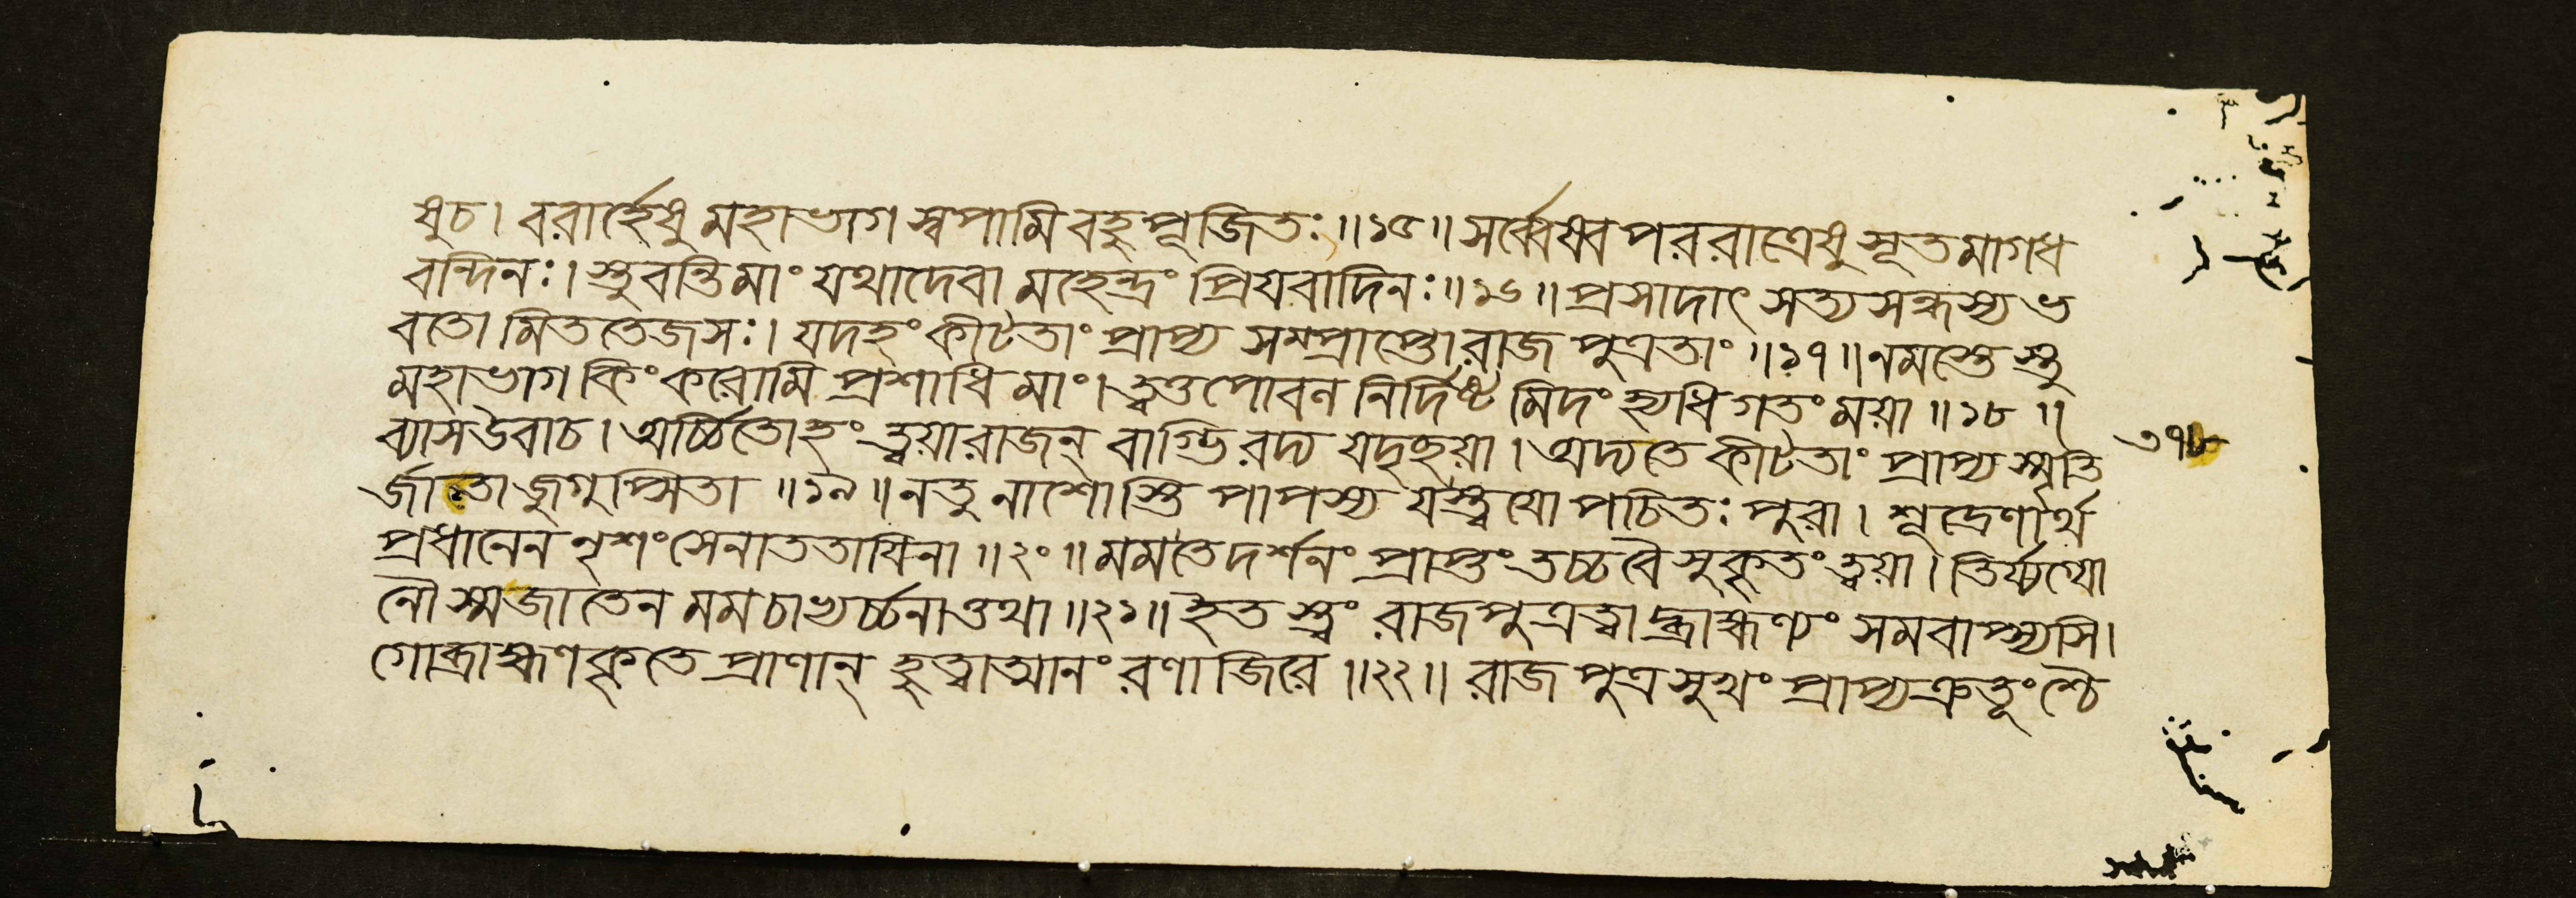 ষুচ। বরার্হেষু মহাভাগ স্বপামি বহুপূজিতঃ॥১৫॥ সর্ব্বেষ্বপররাত্রেষু সূতমাগধ
বন্দিনঃ। স্তুবন্তিমাং যথাদেবা মহেন্দ্রং প্রিযবাদিনঃ॥১৬॥ প্রসাদাৎ সত্যসন্ধস্য ভ
বতো মিততেজসঃ। যদহং কীটতাং প্রাপ্য সম্প্রাপ্তোরাজপুত্রতাং॥১৭॥ নমস্তেস্তু
মহাভাগ কিংকরোমি প্রশাধি মাং। ত্বত্তপোবননির্দিষ্টমিদংহ্যধিগতংময়া॥১৮॥
ব্যাসউবাচ। অর্চ্চিতোহং ত্বয়ারাজন্ বাগ্ভিরদ্য যদৃছয়া। অদ্যতে কীটতাং প্রাপ্য স্মৃতি
৩৭৮
র্জাতা জুগুপ্সিতা॥১৯॥ নতু নাশোস্তি পাপস্য যস্ত্বযোপচিতঃ পুরা। শূদ্রেণার্থ
প্রধানেন নৃশংসেনাততাযিনা॥২০॥ মমতেদর্শনং প্রাপ্তং তচ্চবৈসুকৃতং ত্বয়া। তির্য্যগ্যো
নৌ স্মজাতেন মমচাভ্যর্চ্চনাত্তথা॥২১॥ ইতস্ত্বং রাজপুত্রত্বাদ্ব্রাহ্মণ্যং সমবাপ্স্যসি।
গোব্রাহ্মণকৃতে প্রাণান্ হুত্বাত্মানং রণাজিরে॥২২॥ রাজপুত্রসুখং প্রাপ্য ক্রতূংশ্চৈ